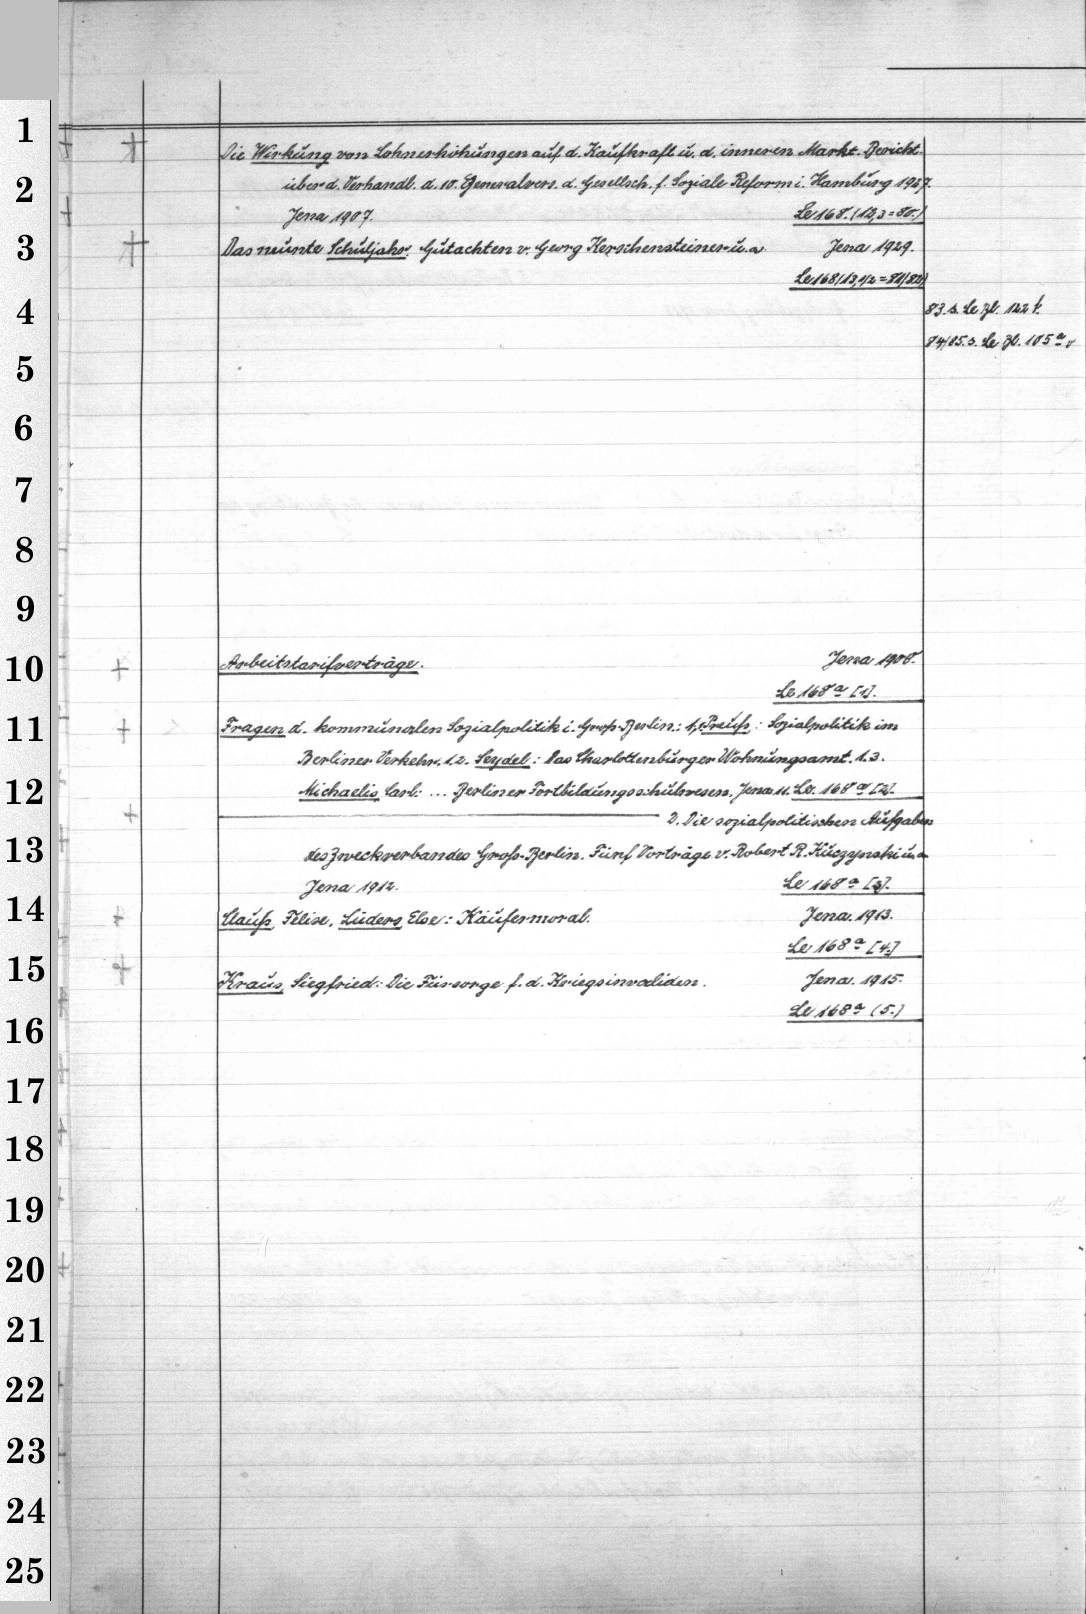 1
Die Wirkung von Lohnerhöhungen auf d. Kaufkraft u. d. inneren Markt. Bericht
2
über d. Verhandl. d. 10. Generalvers. d. Gesellsch. f. Soziale Reform i. Hamburg 1927.
Jena 1907. Le 168. (12,3=80.)
3
Das neunte Schuljahr. Gutachten v. Georg Kerschensteiner u. a. Jena 1929.
Le 168 (13,1/2=81/82)
4
83. s. Le Zl. 122 k.
84/85. s. Le Zl. 105 a
5
6
7
8
9
10
Arbeitstarifverträge. Jena 1908.
Le 168 a [1].
11
Fragen d. kommunalen Sozialpolitik i. Groß-Berlin.: 1,1. Preuß: Sozialpolitik im
Berliner Verkehr. 1,2. Seydel: Das Charlottenburger Wohnungsamt. 1.3.
12
Michaelis, Carl: ... Berliner Fortbildungsschulwesen. Jena 11. Le. 168 a [2].
2. Die sozialpolitischen Aufgaben
13
des Zweckverbandes Groß-Berlin. Fünf Vorträge v. Robert R. Kuczynski u. a
Jena 1912. Le 168 a [3].
14
Clauß, Felise, Lüders, Else: Käufermoral. Jena. 1913.
Le 168 a [4.]
15
Kraus, Siegfried: Die Fürsorge f. d. Kriegsinvaliden. Jena. 1915.
Le 168 a (5.)
16
17
18
19
20
21
22
23
24
25